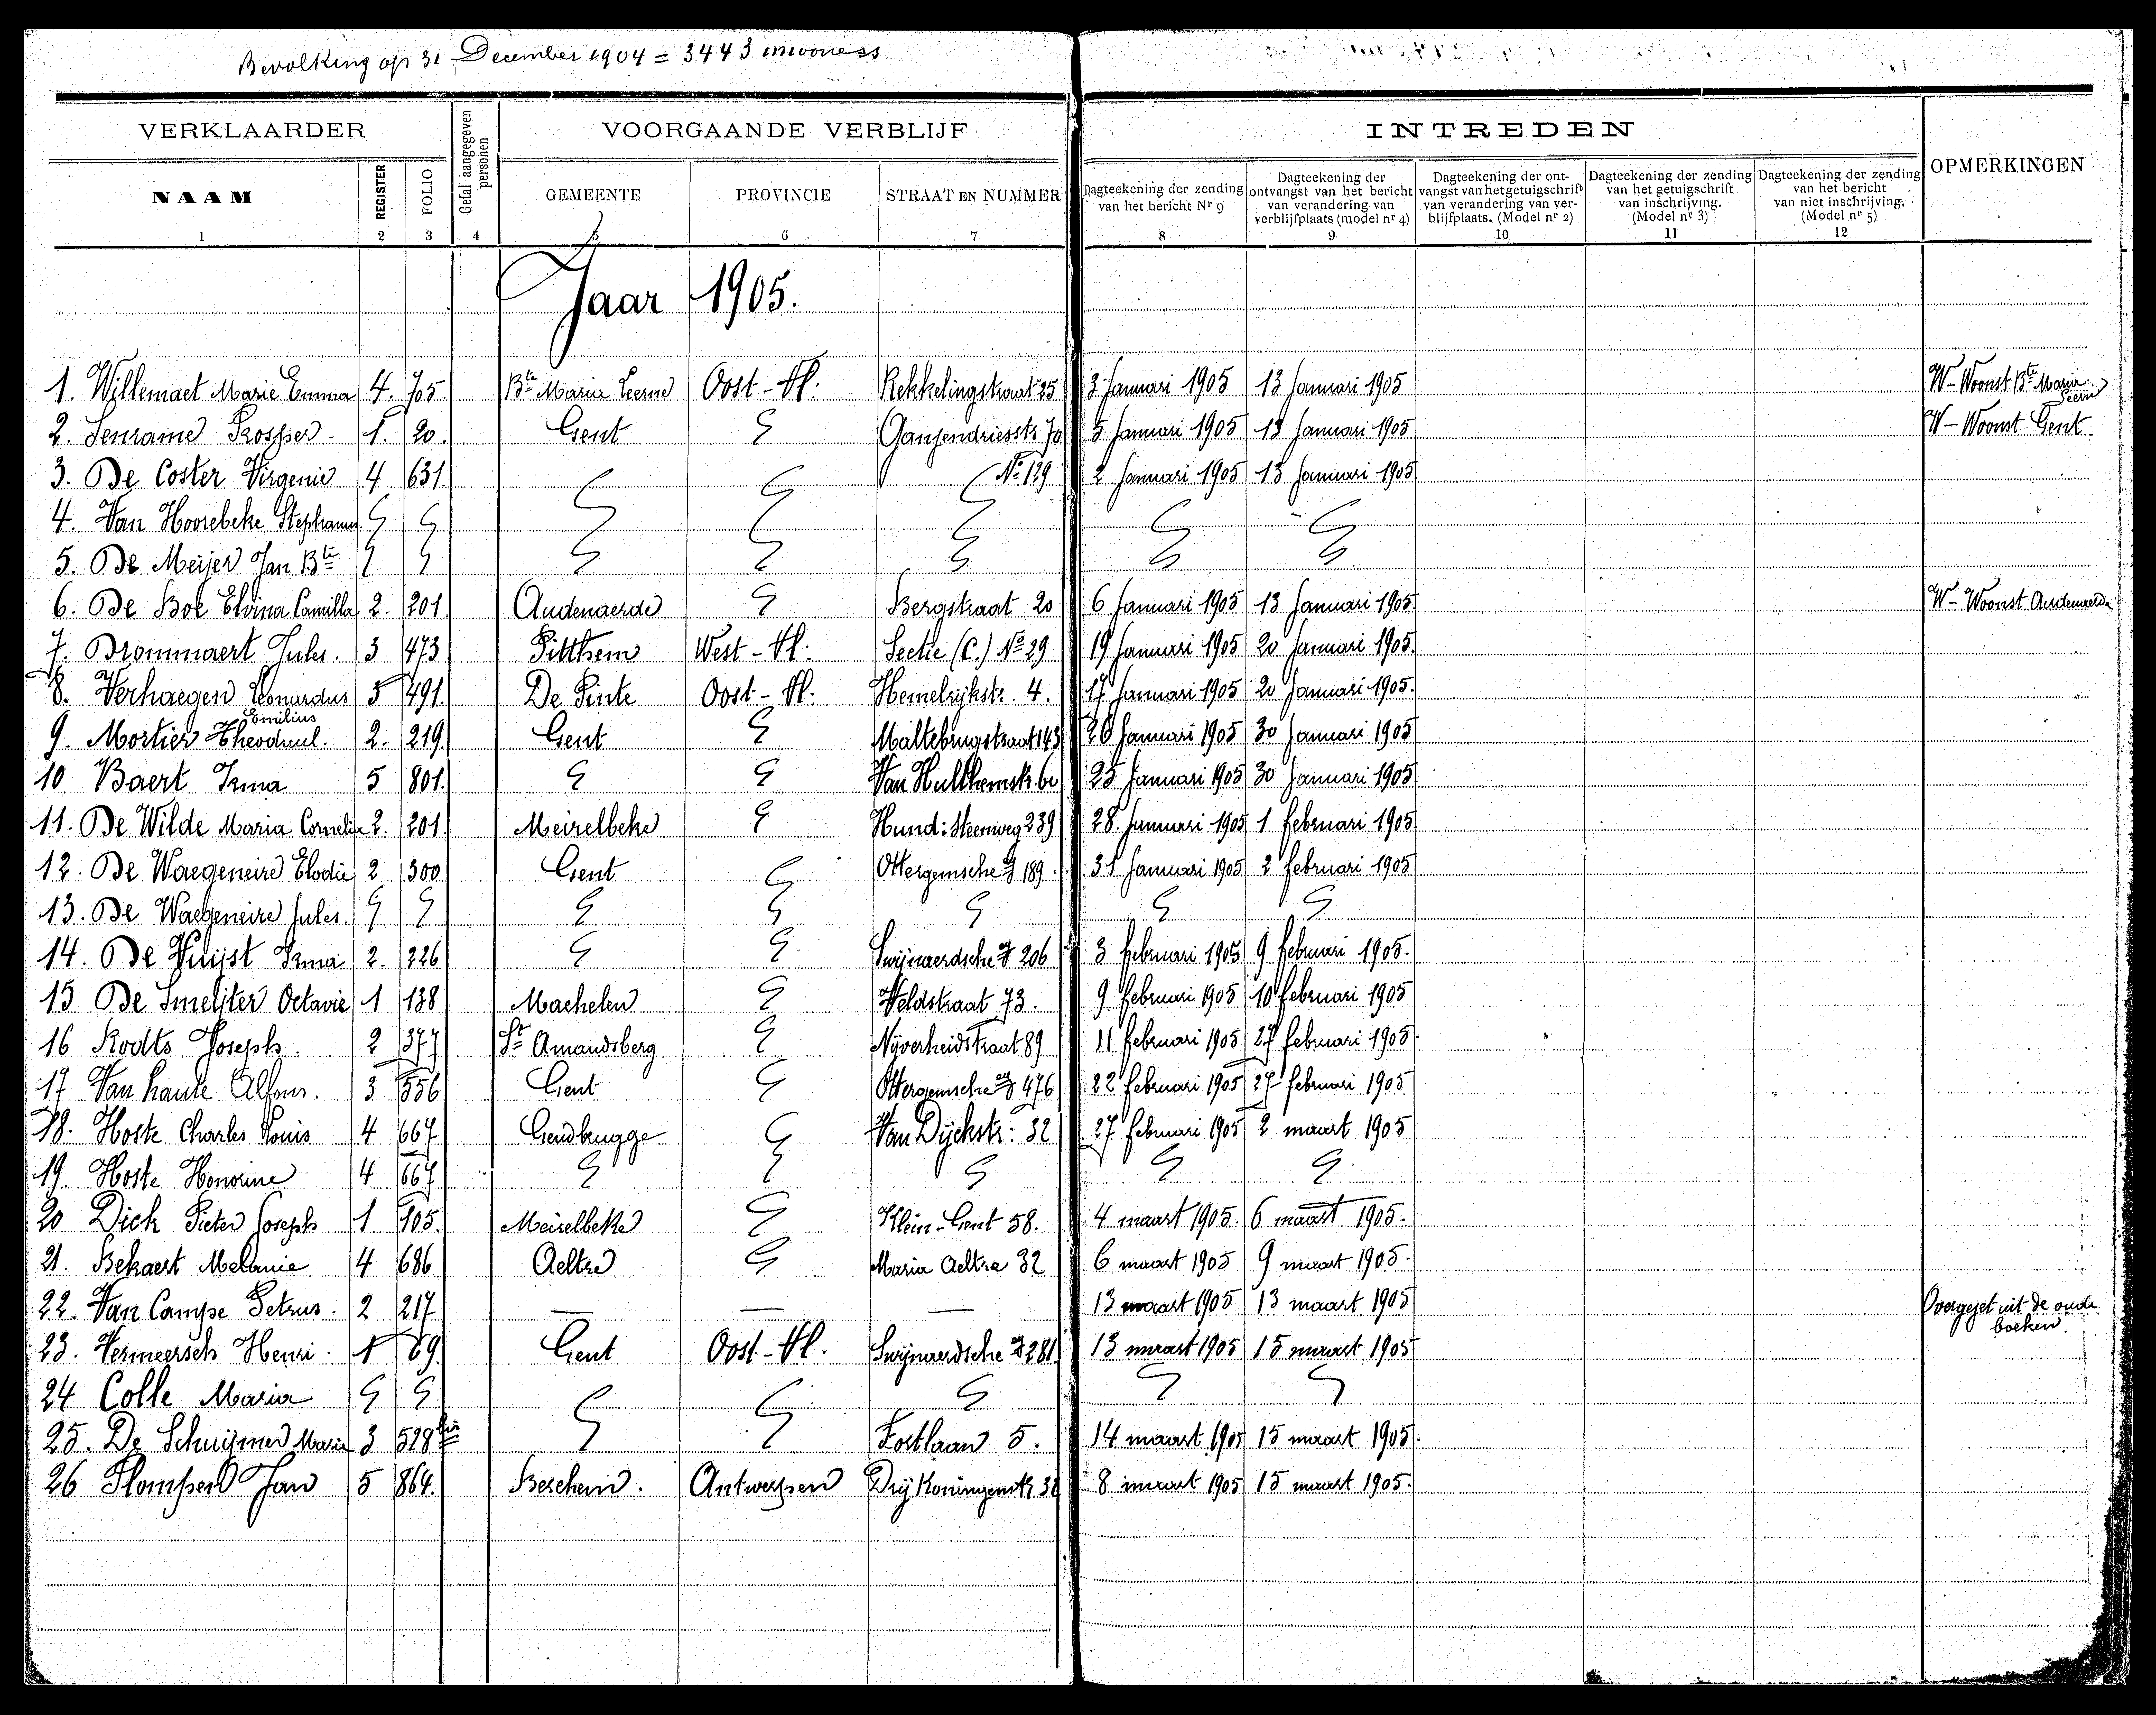 Bevolking op 31 December 1904 = 3443 inwoners
VERKLAARDER
Getal aangegeven personen
VOORGAANDE VERBLIJF
INTREDEN
OPMERKINGEN
NAAM
REGISTER
FOLIO
GEMEENTE
PROVINCIE
STRAAT EN NUMMER
Dagteekening der zending van het bericht Nr 9
Dagteekening der ontvangst van het bericht van verandering van verblijfplaats (model nr 4)
Dagteekening der ontvangst van het getuigschrift van verandering van verblijfplaats. (Model nr 2)
Dagteekening der zending van het getuigschrift van inschrijving. (Model nr 3)
Dagteekening der zending van het bericht van niet inschrijving. (Model nr 5)
1 2 3 4 5 6 7 8 9 10 11 12
Jaar 1905.
1. Willemaet Marie Emma 4. 705. Bte Maria Leerne Oost-Vl: Rekkelingstraat 25 3 Januari 1905 13 Januari 1905 W-Woonst Bte Maria Leerne
2. Senrame Prosper. 1. 20. Gent Ganzendriesstr 70 5 Januari 1905 13 Januari 1905 W-Woonst Gent
3. De Coster Virgenie 4 631. No 129 2 Januari 1905 13 Januari 1905
4. Van Hoorebeke Stephanie
5. De Meijer Jan Bte
6. De Bol Elvina Camilla 2. 201 Audenaerde Bergstraat 20 6 Januari 1905 13 Januari 1905 W-Woonst Audenaerde
7. Brommaert Jules. 3 473 Pitthem West-Vl: Sectie (C.) No 29 19 Januari 1905 20 Januari 1905.
8. Verhaegen Leonardus 5 491. De Pinte Oost-Vl: Hemelrijkstr. 4. 17 Januari 1905 20 Januari 1905.
9. Mortier Theoduul. Emilius 2. 219. Gent Maltebrugstraat 143 26 Januari 1905 30 Januari 1905
10 Baert Irma 5 801. Van Hulthemstr. 25 Januari 1905 30 Januari 1905
11. De Wilde Maria Cornelia 2. 201. Meirelbeke Hund: Steenweg 239 28 Januari 1905 1 februari 1905
12. De Waegeneire Elodie 2 300 Gent Ottergemsche 189. 31 Januari 1905 2 februari 1905
13. De Waegeneire Jules.
14. De Vuijst Irma 2. 226 Swijnaerdsche 206 3 februari 1905 9 februari 1905.
15 De Smeijter Octavie 1 138 Machelen Veldstraat 73. 9 februari 1905 10 februari 1905
16 Rodts Joseph. 2 377 St Amandsberg Nijverheidstraat 89 11 februari 1905 27 februari 1905.
17 Van haute Alfons. 3 556 Gent Ottergemsche 476 22 februari 1905 27 februari 1905
18. Hoste Charles Louis 4 667 Gendbrugge Van Dijckstr: 32 27 februari 1905 2 maart 1905
19. Hoste Honorine 4 667
20 Dick Pieter Joseph 1 105. Meirelbeke Klein-Gent 58. 4 maart 1905. 6 maart 1905.
21. Bekaert Melanie 4 686 Aeltre Maria Aeltre 32 6 maart 1905 9 maart 1905.
22. Van Campe Petrus. 2 217 — — — 13 maart 1905 13 maart 1905 Overgezet uit de oude boeken.
23. Vermeersch Henri. 1 69. Gent Oost-Vl. Swijnaerdsche 281. 13 maart 1905 15 maart 1905
24 Colle Maria
25. De Schuijmer Marie 3 528 bis Fostlaan 5. 14 maart 1905 15 maart 1905.
26 Plompen Jan 5 864. Berchem. Antwerpen Drij Koningenstr 32 8 maart 1905 15 maart 1905.